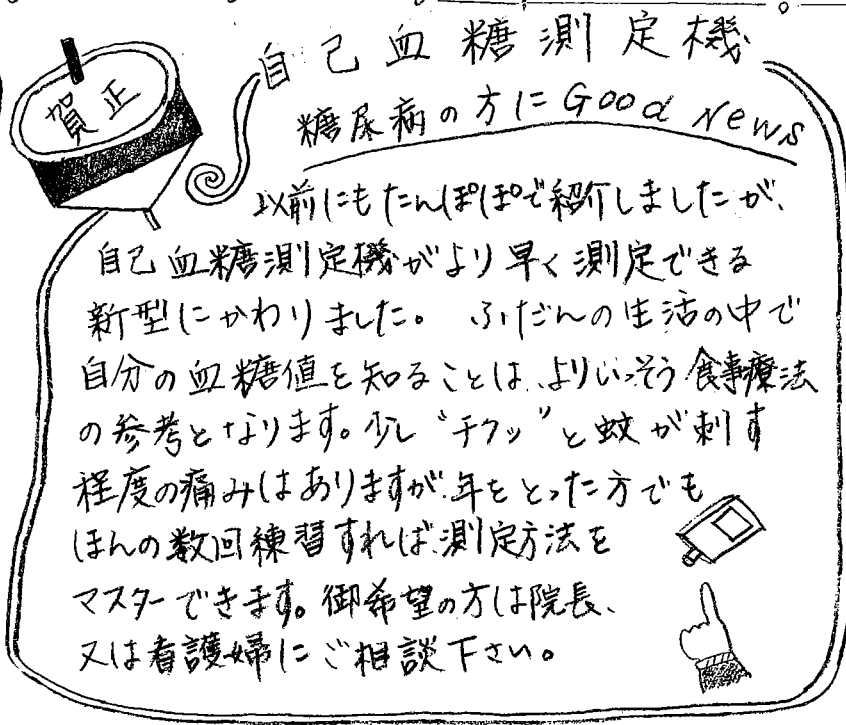 賀正
自己血糖測定機
糖尿病の方に Good News
以前にもたんぽぽで紹介しましたが、
自己血糖測定機がより早く測定できる
新型にかわりました。 ふだんの生活の中で
自分の血糖値を知ることは、よりいっそう食事療法
の参考となります。少し“チクッ”と蚊が刺す
程度の痛みはありますが、年をとった方でも
ほんの数回練習すれば、測定方法を
マスターできます。御希望の方は院長、
又は看護婦にご相談下さい。